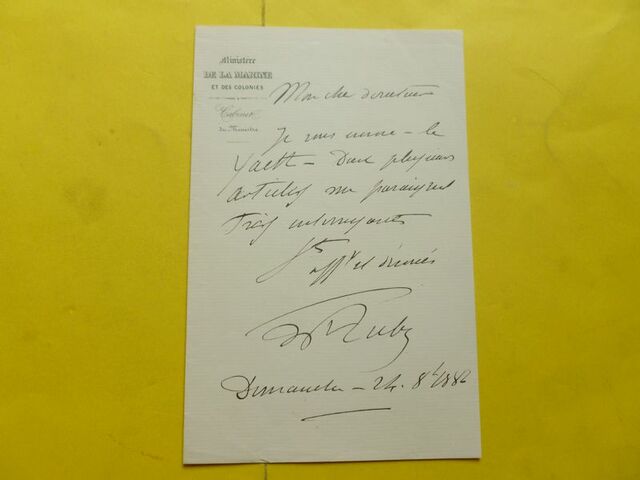 Ministère
DE LA MARINE
ET DES COLONIES
Cabinet
du Ministre
Mon cher directeur
Je vous envoie - le
Yacht - Dont plusieurs
articles me paraissent
très intéressants
Dimanche - 24. 8bre 1886